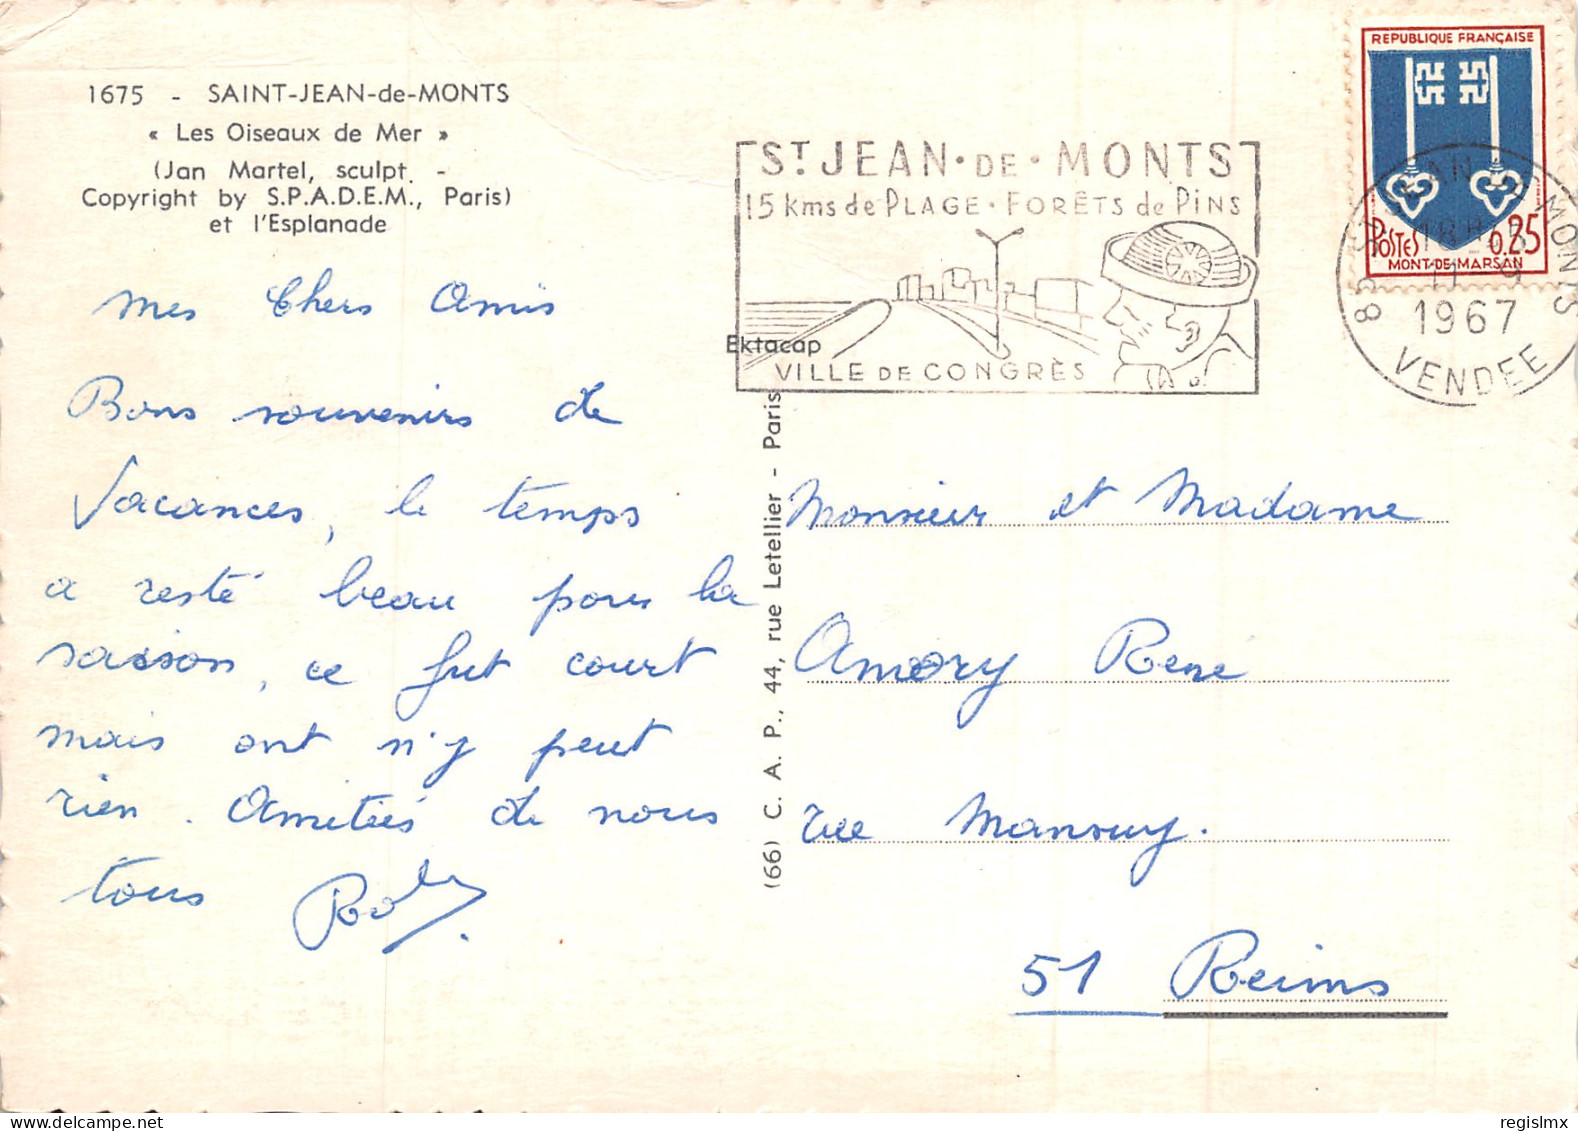 1675 - SAINT-JEAN-de-MONTS
« Les Oiseaux de Mer »
(Jan Martel, sculpt. -
Copyright by S.P.A.D.E.M., Paris)
et l'Esplanade
Mes Chers Amis
Bons souvenirs de
Vacances, le temps
a resté beau pour la
saison, ce fut court
mais ont n'y peut
rien. Amitiés de nous
tous
Ektacap
(66) C. A. P., 44, rue Letellier - Paris
ST JEAN·DE·MONTS
15 kms de PLAGE·FORÊTS de PINS
VILLE DE CONGRÈS
REPUBLIQUE FRANÇAISE
POSTES 0.25
MONT-DE-MARSAN
85 ST JEAN DE MONTS
18H
1967
VENDEE
Monsieur et Madame
Amory René
rue Mansuy.
51 Reims
regislmx
delcampe.net